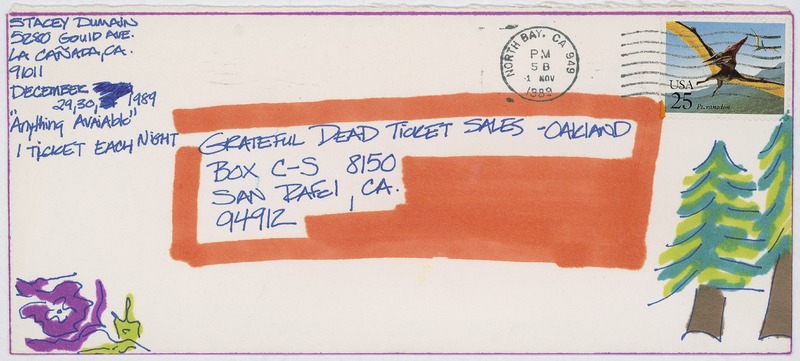 STACEY DUMAIN
5280 GOULD AVE.
LA CAÑADA, CA.
91011
DECEMBER
29, 30, 1989
"Anything Avaiable"
1 TICKET EACH NIGHT
NORTH BAY, CA 949
PM
5B
1 NOV
1989
USA
25 Pteranodon
GRATEFUL DEAD TICKET SALES - OAKLAND
BOX C-S 8150
SAN RAFEl, CA.
94912